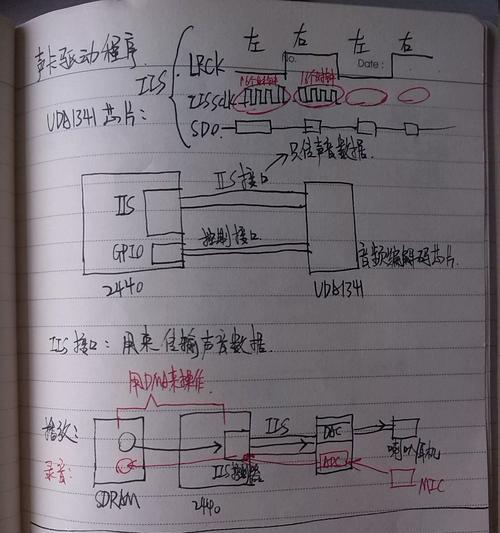 声卡驱动程序
UDA1341芯片:
IIS
左 右 左 右
LRCK
No.
Date:
16个时钟 16个时钟
IISSCLK
SDO
只传声音数据.
IIS接口
IIS
控制接口
GPIO
音频编解码芯片.
2440 UDA1341
IIS接口: 用来传输声音数据.
用DMA来操作.
播放:
IIS
DAC
喇叭/耳机
录音:
ADC
IIS控制器
MIC
SDRAM 2440